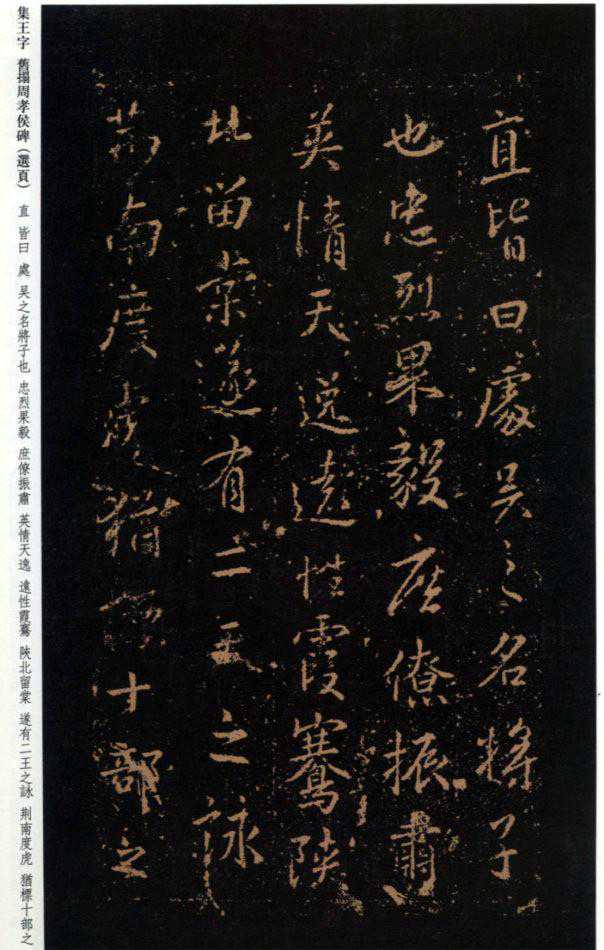 直皆曰處吴之名將子
也忠烈果毅庶僚振肅
英情天逸遠性霞鶱陝
北留棠遂有二王之詠
荆南度虎猶標十部之
集王字 舊搨周孝侯碑（選頁） 直 皆曰 處 吴之名將子也 忠烈果毅 庶僚振肅 英情天逸 遠性霞鶱 陝北留棠 遂有二王之詠 荆南度虎 猶標十部之